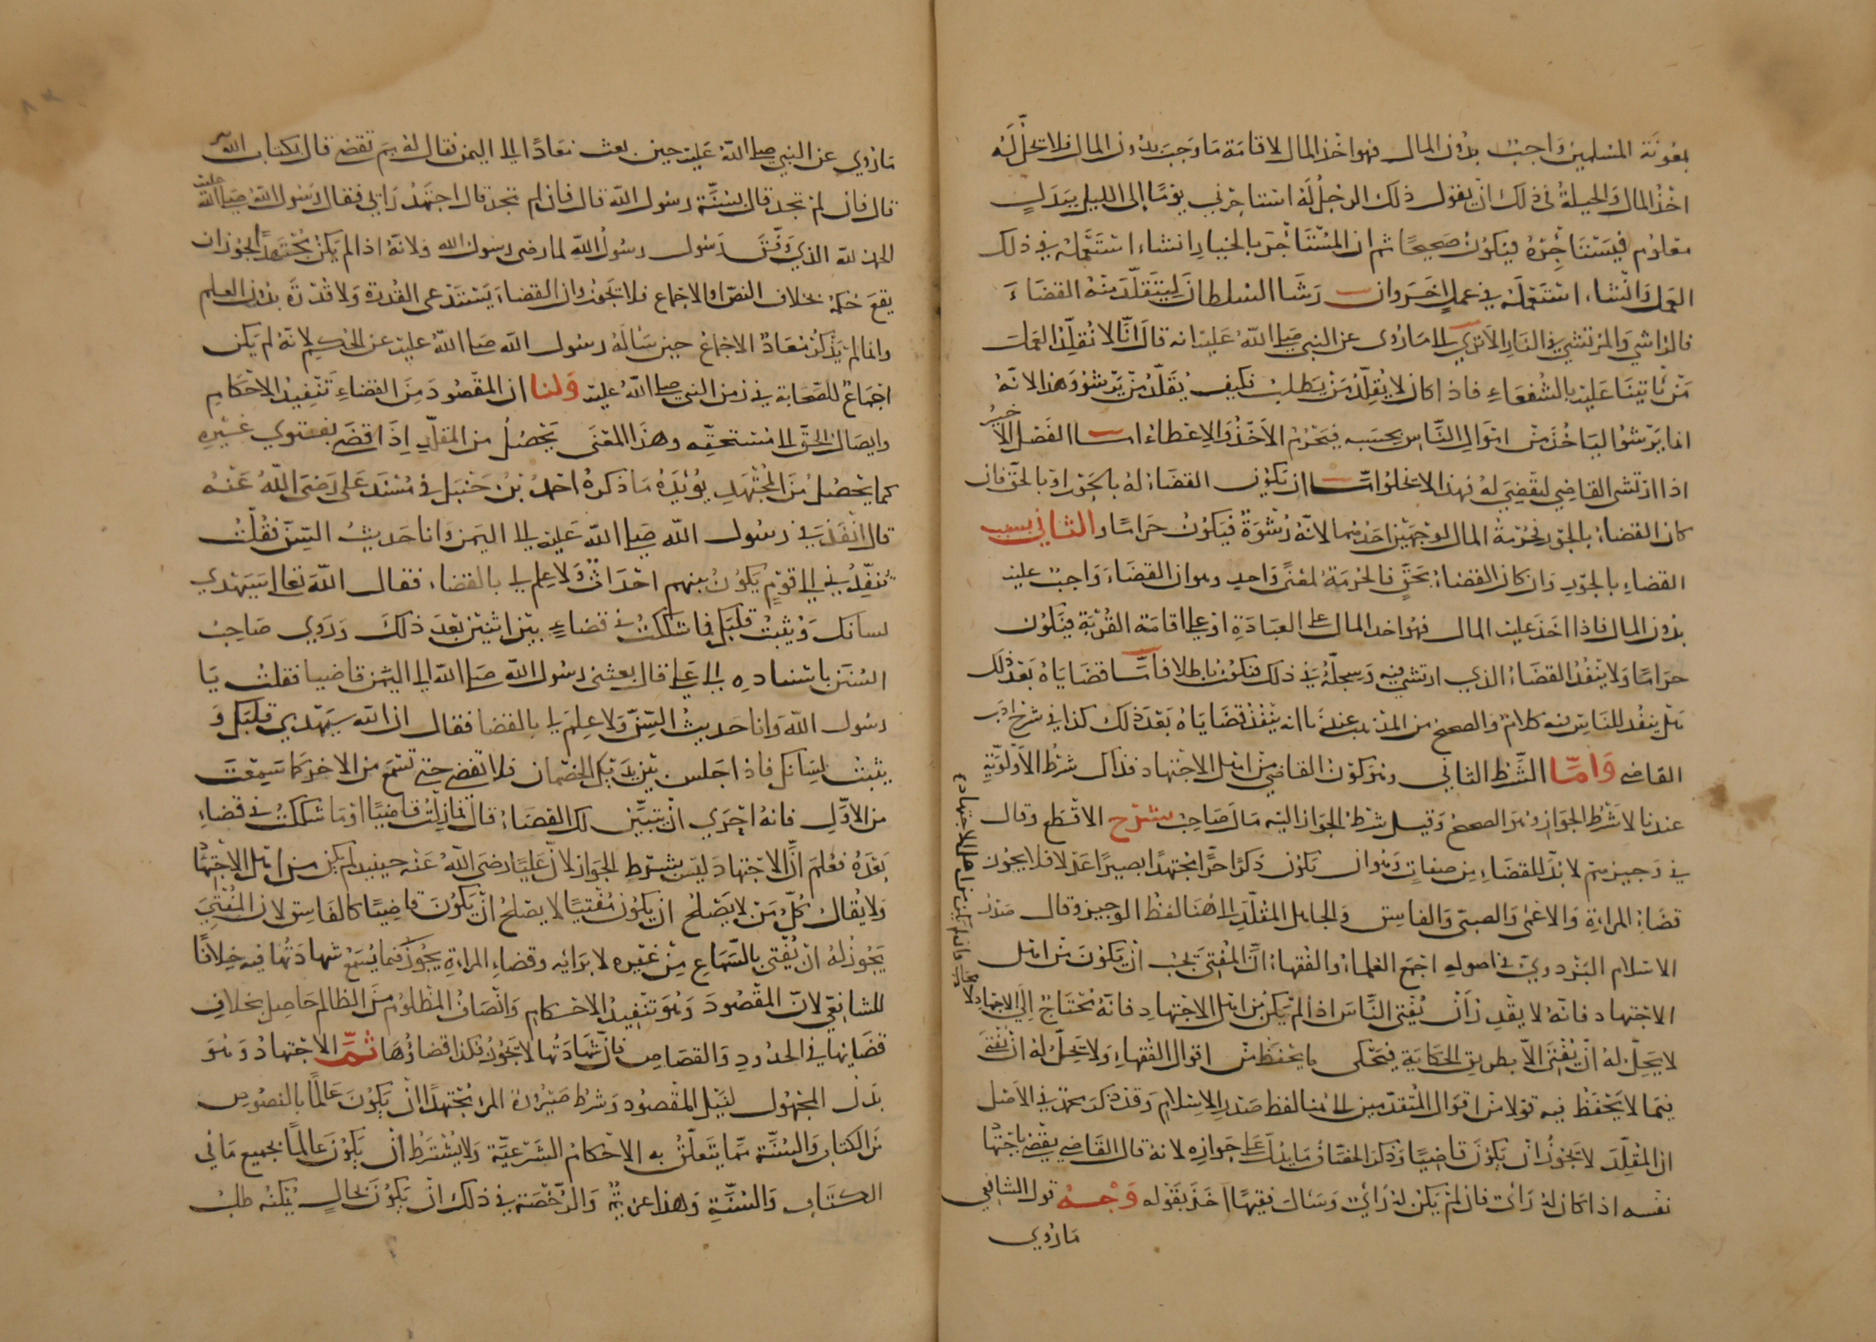 بمعونة المسلمين واجب بدون المال فهو اخذ المال لاقامة ما وجب بدون المال فلا يحل له
اخذ المال والحيلة في ذلك ان يقول ذلك الرجل له استاجرني يوما الى الليل ببدل
معلوم فيستاجره فيكون صحيحا ثم ان المستاجر بالخيار ان شاء استعمله في ذلك
العمل وان شاء استعمله في عمل اخر وان رشا السلطان ليتقلد منه القضاء
فالراشي والمرتشي في النار الا ترى الى ما روى عن النبي صلى الله عليه انه قال انا لا نقلد العمل
من ياتينا عليه بالشفعاء فاذا كان لا يقلد من يطلب فكيف يقلد من يرشو وهذا لانه
انما يرشو لياخذ من اموال الناس بحسبه فيحرم الاخذ والاعطاء اما الفصل الاخير
اذا ارتشى القاضي ليقضي له فهذا لا يخلو اما ان يكون القضاء له بالجور او بالحق فان
كان القضاء بالجور فحرمة المال لوجهين احدهما لانه رشوة فيكون حراما والثاني بسبب
القضاء بالجور وان كان القضاء بحق فالحرمة لمعنى واحد وهو ان القضاء واجب عليه
بدون المال فاذا اخذ عليه المال فهو اخذ المال على العبادة او على اقامة القربة فيكون
حراما ولا ينفذ القضاء الذي ارتشى فيه وسجله في ذلك فيكون باطلا فاما قضاياه بعد ذلك
هل ينفذ للناس فيه كلام والصحيح من المذهب عندنا انه ينفذ قضاياه بعد ذلك كذا في شرح ادب
القاضي واما الشرط الثاني وهو كون القاضي من اهل الاجتهاد فذاك شرط الاولوية
عندنا لا شرط الجواز وهو الصحيح وقيل شرط الجواز اليه مال صاحب شرح الاقطع وقال
في وجيزهم لا بد للقضاء من صفات وهو ان يكون ذكرا حرا مجتهدا بصيرا عدلا فلا يجوز
قضاء المراة والاعمى والصبي والفاسق والجاهل المقلد الى هنا لفظ الوجيز وقال صدر
الاسلام البزدوي في اصوله اجمع العلماء والفقهاء ان المفتي يجب ان يكون من اهل
الاجتهاد فانه لا يقدر ان يفتي الناس اذا لم يكن من اهل الاجتهاد فانه يحتاج الى الاجتهاد
لا يحل له ان يفتي الا بطريق الحكاية فيحكي ما يحفظ من اقوال الفقهاء ولا يحل له ان يفتي
فيما لا يحفظ فيه قولا من اقوال المتقدمين الى هنا لفظ صدر الاسلام وقد ذكر محمد في الاصل
ان المقلد لا يجوز ان يكون قاضيا وذكر الخصاف ما يدل على جوازه لانه قال القاضي يقضي باجتهاد
نفسه اذا كان له راي فان لم يكن له راي وسال فقيها اخذ بقوله وجه قول الشافعي
ما روي
فان لم يكن من اهل الاجتهاد
ما روي عن النبي صلى الله عليه حين بعث معاذا الى اليمن فقال له بم تقضي قال بكتاب الله
قال فان لم تجد قال بسنة رسول الله قال فان لم تجد قال اجتهد رايي فقال رسول الله صلى الله عليه
الحمد لله الذي وفق رسول رسول الله لما رضي رسول الله ولانه اذا لم يكن مجتهدا لجوز ان
يقع حكمه بخلاف النص او الاجماع فلا يجوز وان القضاء يستدعي القدرة ولا قدرة بدون العلم
وانما لم يذكر معاذ الاجماع حين ساله رسول الله صلى الله عليه عن الحكم لانه لم يكن
اجماع للصحابة في زمن النبي صلى الله عليه ولنا ان المقصود من القضاء تنفيذ الاحكام
وايصال الحق الى مستحقه وهذا المعنى يحصل من المقلد اذا قضى بفتوى غيره
كما يحصل من المجتهد يؤيده ما ذكره احمد بن حنبل في مسند علي رضي الله عنه
قال انفذني رسول الله صلى الله عليه الى اليمن وانا حديث السن فقلت
تنفذني الى قوم يكون بينهم احداث ولا علم لي بالقضاء فقال الله تعالى سيهدي
لسانك ويثبت قلبك فما شككت في قضاء بين اثنين بعد ذلك وروى صاحب
السنن باسناده الى علي قال بعثني رسول الله صلى الله الى اليمن قاضيا فقلت يا
رسول الله وانا حديث السن ولا علم لي بالقضا فقال ان الله سيهدي قلبك و
يثبت لسانك فاذا جلس بين يديك الخصمان فلا تقضى حتى تسمع من الاخر كما سمعت
من الاول فانه احرى ان يتبين لك القضاء قال فما زلت قاضيا او ما شككت في قضاء
بعده فعلم ان الاجتهاد ليس بشرط الجواز لان عليا رضى الله عنه حينئذ لم يكن من اهل الاجتهاد
ولا يقال كل من لا يصلح ان يكون مفتيا لا يصلح ان يكون قاضيا كالفاسق لان المفتي
يجوز له ان يفتي بالسماع من غيره لا برايه وقضاء المراة يجوز فيما يسمع شهادتها فيه خلافا
للشافعي لان المقصود وهو تنفيذ الاحكام وانصاف المظلوم من الظالم حاصل بخلاف
قضائها في الحدود والقصاص فان شهادتها لا يجوز فكذا قضاؤها ثم الاجتهاد وهو
بذل المجهول لنيل المقصود وشرط صيرورة المرء مجتهدا ان يكون عالما بالنصوص
من الكتاب والسنة مما يتعلق به الاحكام الشرعية ولا يشترط ان يكون عالما بجميع ما في
الكتاب والسنة وهذا عزيمة والرخصة في ذلك ان يكون بحال يمكنه طلب